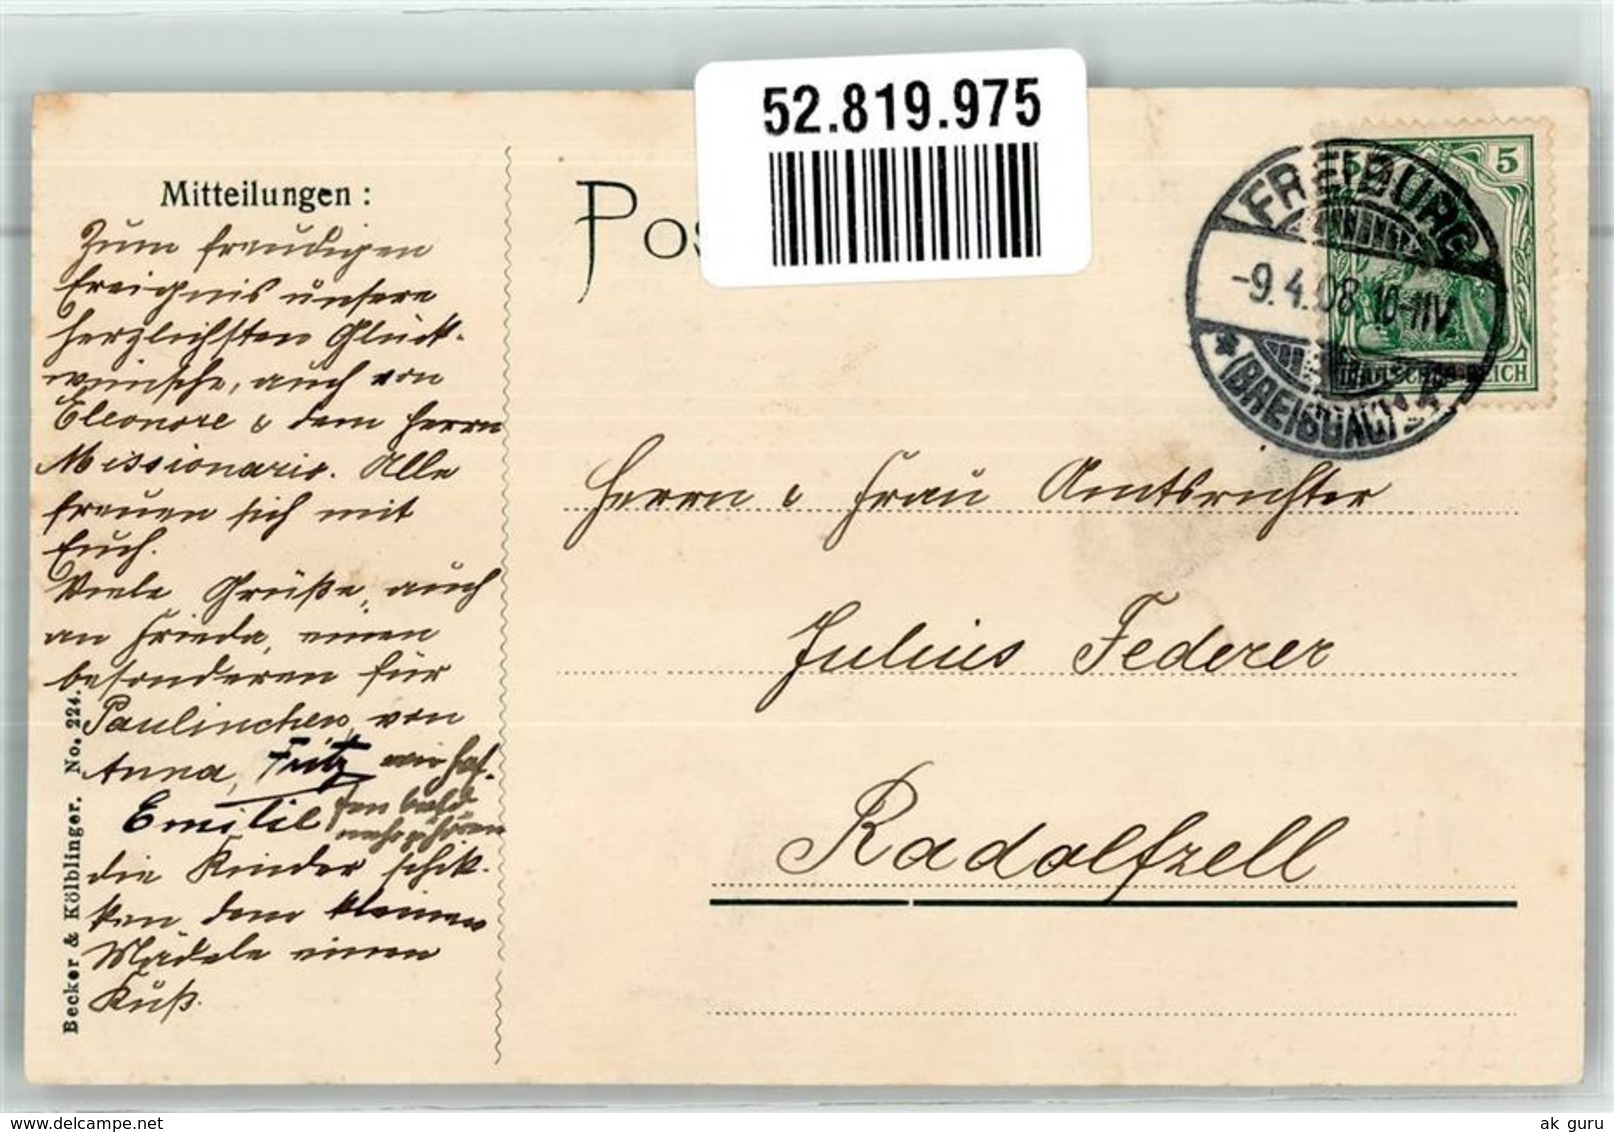 52.819.975
Mitteilungen :
Zum freudigen
Ereignis unsere
herzlichsten Glück-
wünsche, auch von
Eleonore & dem Herrn
Missionario. Alle
freuen sich mit
Euch.
Viele Grüße, auch
an Frieda, einen
besonderen für
Paulinchen, von
Anna, Fritz wir hof-
Emil fen bald
mehr zu hören
die Kinder schik-
ken dem kleinen
Mädele einen
Kuß.
Becker & Kölblinger. No. 224.
Pos
FREIBURG
-9.4.08.10-11V
* (BREISGAU)
5
DEUTSCHES REICH
Herrn & Frau Amtsrichter
Julius Federer
Radolfzell
ak guru